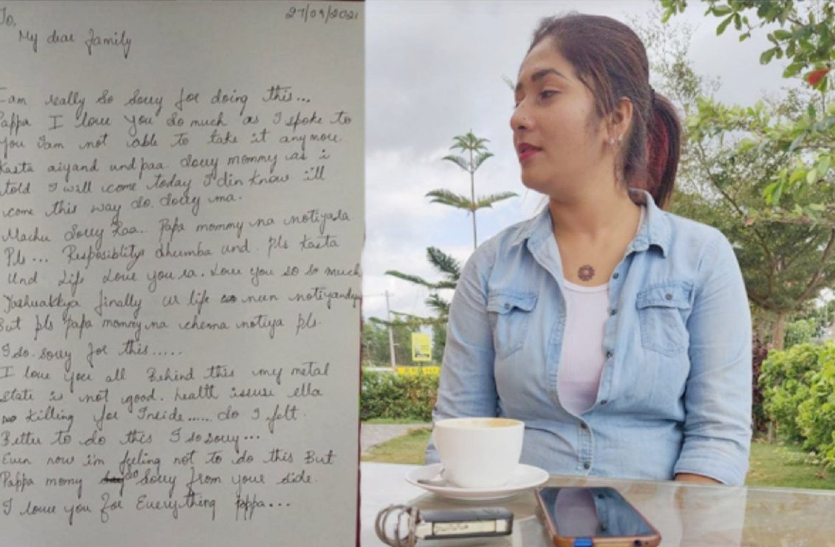 27/09/2021
To,
My dear family
I am really so sorry for doing this...
Pappa I love you do much as I spoke to
you I am not able to take it anymore
Kasta aiyand und paa. sorry mommy as i
told I will come today I din know ill
come this way do. sorry ma.
Machu sorry Kaa.. Papa mommy na notiyala
Pls... Resposiblity dhumba and. pls Kasta
Und Life Love you ra. Love you so so much
finally ur life nun
But pls Papa mommy na chenna notiya pls.
I so. sorry for this.....
I love you all Behind this my metal
state is not good. health issuse ella
Killing for Inside..... do I felt.
Better to do this I so sorry...
Even now i'm feeling not to do this But
Pappa momy so sorry from your side.
I love you for Everything Pappa...